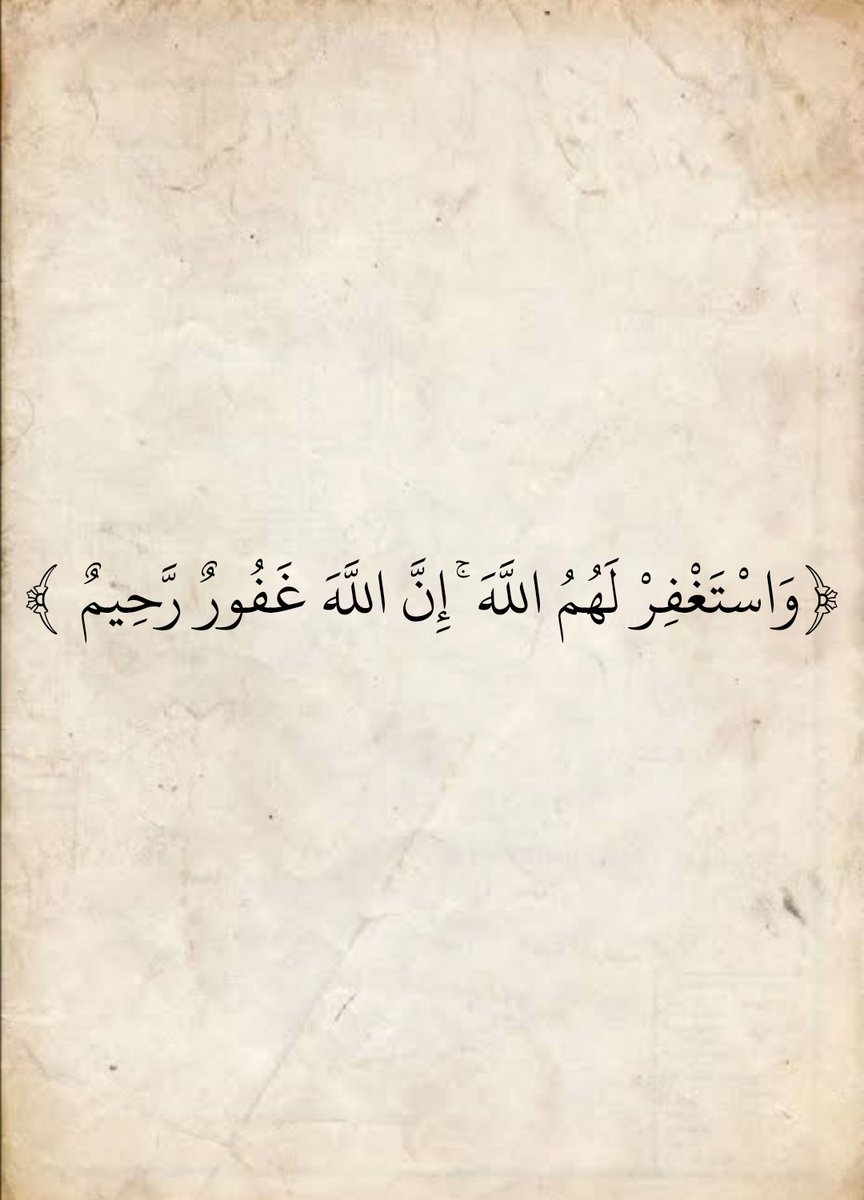 ﴿وَاسْتَغْفِرْ لَهُمُ اللَّهَ ۚ إِنَّ اللَّهَ غَفُورٌ رَّحِيمٌ ﴾